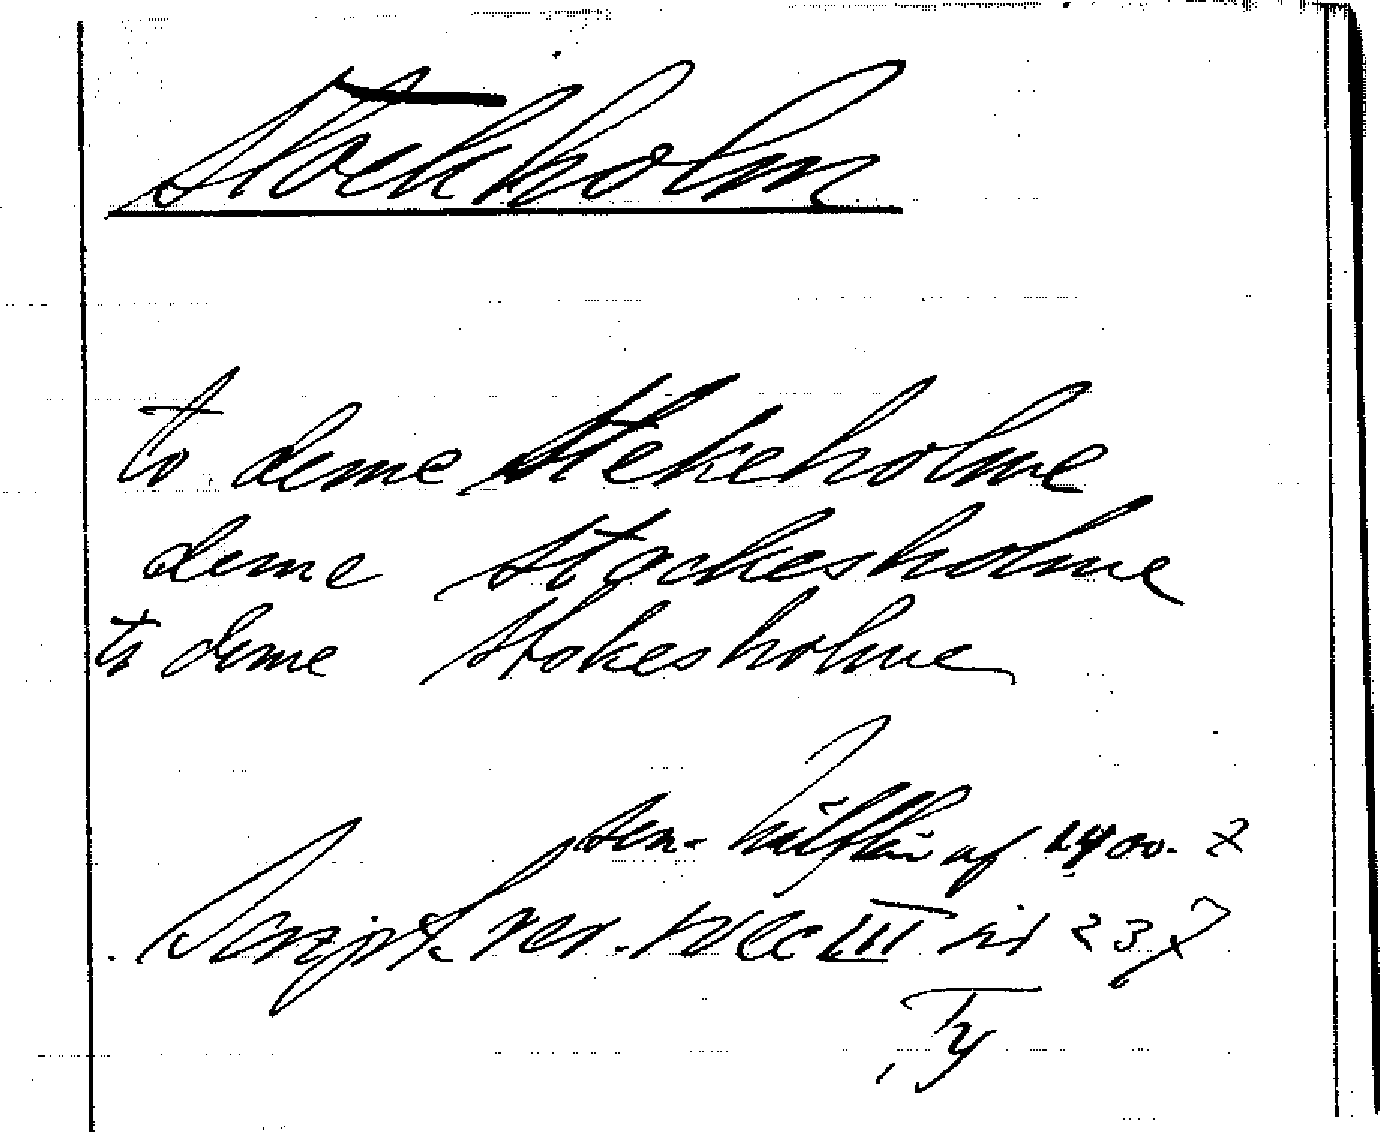 Stockholm
to deme Stekeholme
deme Stockesholme
to deme Stokesholme
sen. hälften af 1400-t
Script. rer. svec III sid 237
Ty